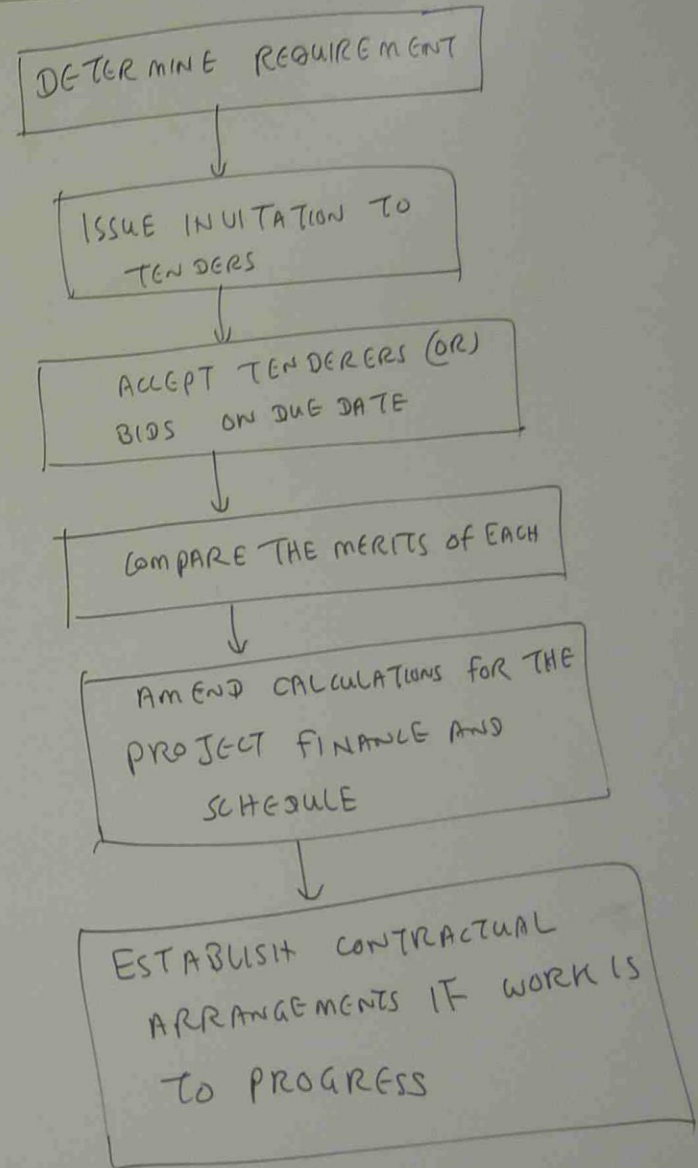 DETERMINE REQUIREMENT
ISSUE INVITATION TO
TENDERS
ACCEPT TENDERERS (OR)
BIDS ON DUE DATE
COMPARE THE MERITS OF EACH
AMEND CALCULATIONS FOR THE
PROJECT FINANCE AND
SCHEDULE
ESTABLISH CONTRACTUAL
ARRANGEMENTS IF WORK IS
TO PROGRESS